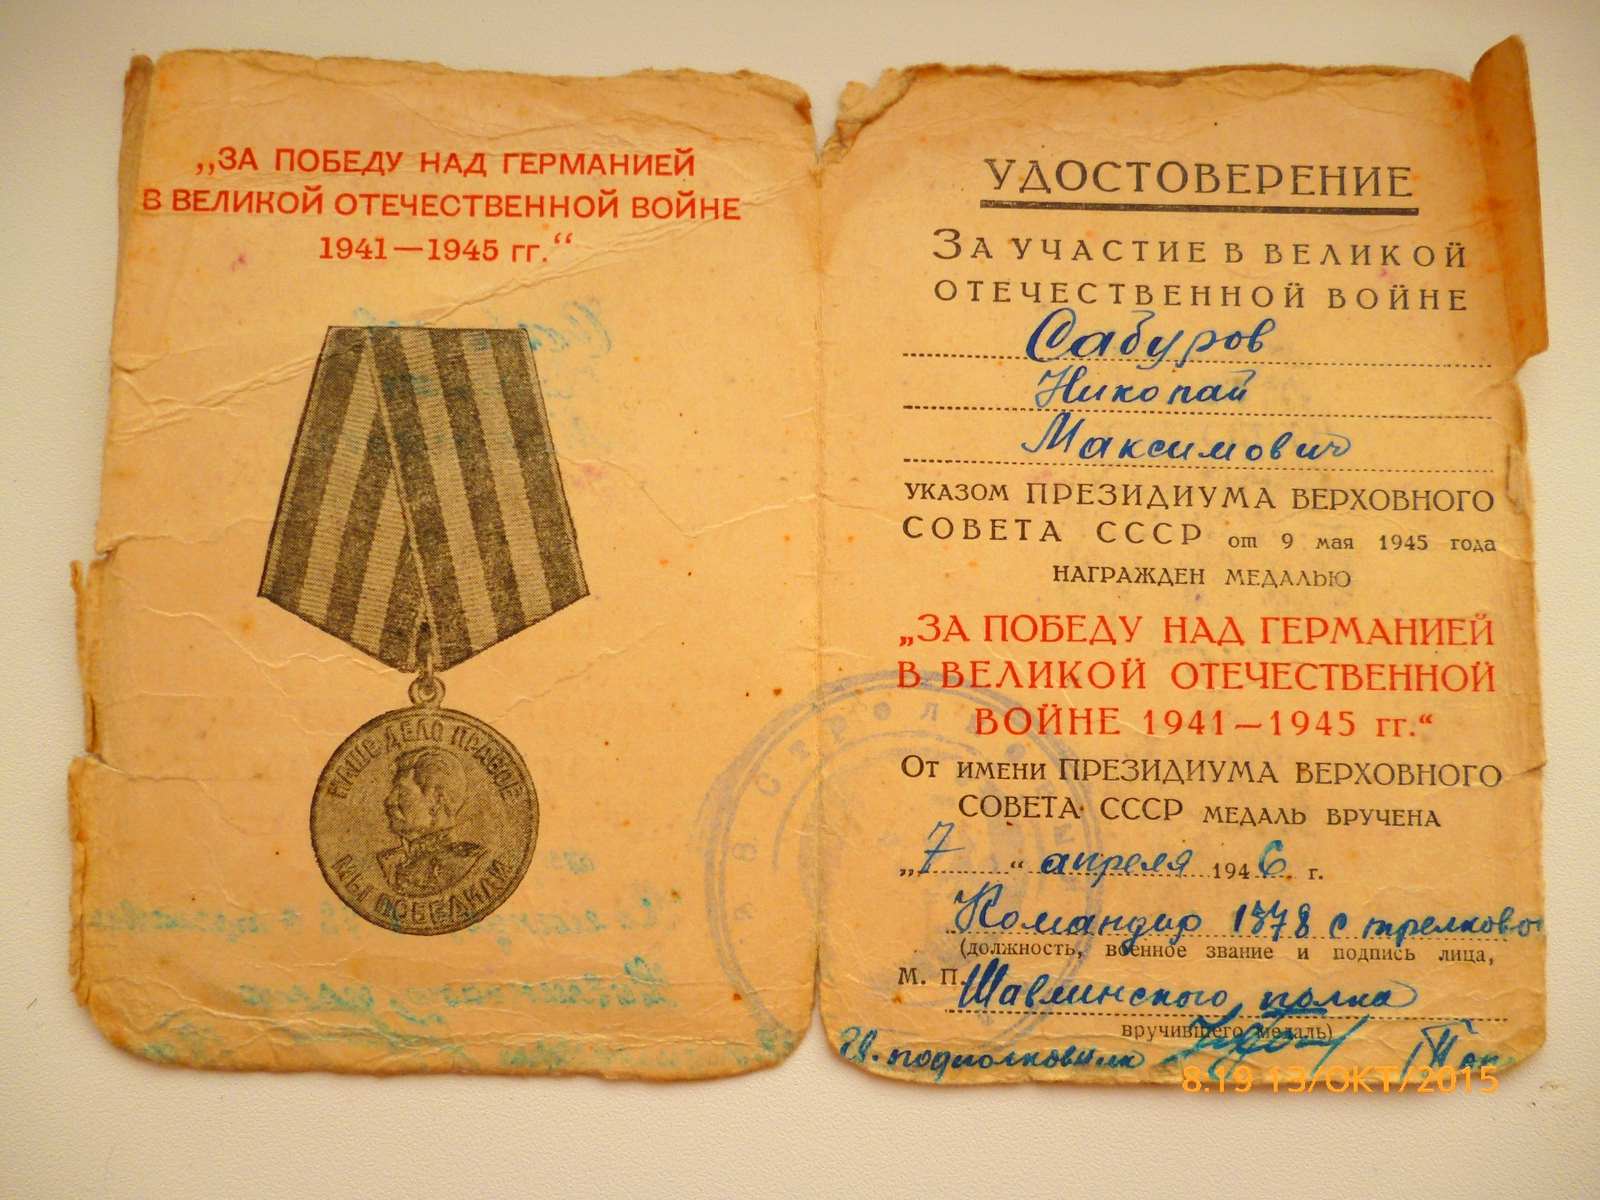 „ЗА ПОБЕДУ НАД ГЕРМАНИЕЙ
В ВЕЛИКОЙ ОТЕЧЕСТВЕННОЙ ВОЙНЕ
1941—1945 гг.“
НАШЕ ДЕЛО ПРАВОЕ
МЫ ПОБЕДИЛИ
УДОСТОВЕРЕНИЕ
ЗА УЧАСТИЕ В ВЕЛИКОЙ
ОТЕЧЕСТВЕННОЙ ВОЙНЕ
Сабуров
Николай
Максимович
УКАЗОМ ПРЕЗИДИУМА ВЕРХОВНОГО
СОВЕТА СССР от 9 мая 1945 года
НАГРАЖДЕН МЕДАЛЬЮ
„ЗА ПОБЕДУ НАД ГЕРМАНИЕЙ
В ВЕЛИКОЙ ОТЕЧЕСТВЕННОЙ
ВОЙНЕ 1941—1945 гг.“
ОТ ИМЕНИ ПРЕЗИДИУМА ВЕРХОВНОГО
СОВЕТА СССР МЕДАЛЬ ВРУЧЕНА
„7“ апреля 1946 г.
Командир 1378 стрелково
(должность, военное звание и подпись лица,
М. П. Шавлинского полка
вручившего медаль)
Гв. подполковник
8:19 13/ОКТ/2015